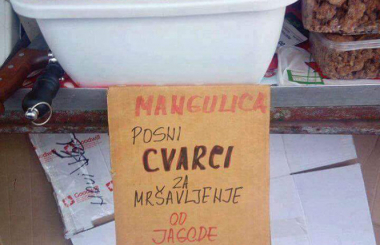 MANGULICA
POSNI
CVARCI
ZA
MRŠAVLJENJE
OD
JAGODE